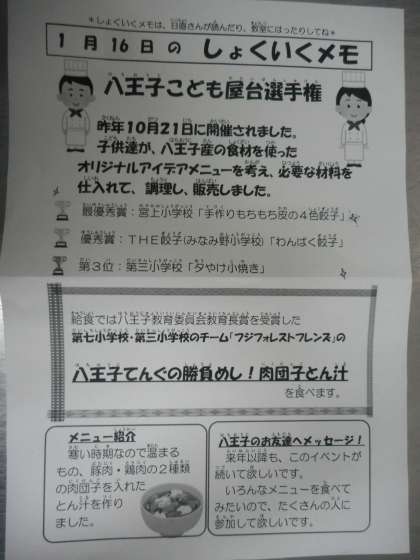 ＊しょくいくメモは、日直さんが読んだり、教室にはったりしてね＊
1月16日の しょくいくメモ
八王子こども屋台選手権
昨年10月21日に開催されました。
子供達が、八王子産の食材を使った
オリジナルアイデアメニューを考え、必要な材料を
仕入れて、調理し、販売しました。
最優秀賞：宮上小学校「手作りもちもち皮の4色餃子」
優秀賞：THE餃子(みなみ野小学校)「わんぱく餃子」
第3位：第三小学校「夕やけ小焼き」
給食では八王子教育委員会教育長賞を受賞した
第七小学校・第三小学校のチーム「フジフォレストフレンズ」の
八王子てんぐの勝負めし！肉団子とん汁
を食べます。
メニュー紹介
寒い時期なので温まる
もの、豚肉・鶏肉の2種類
の肉団子を入れた
とん汁を作り
ました。
八王子のお友達へメッセージ！
来年以降も、このイベントが
続いて欲しいです。
いろんなメニューを食べて
みたいので、たくさんの人に
参加して欲しいです。